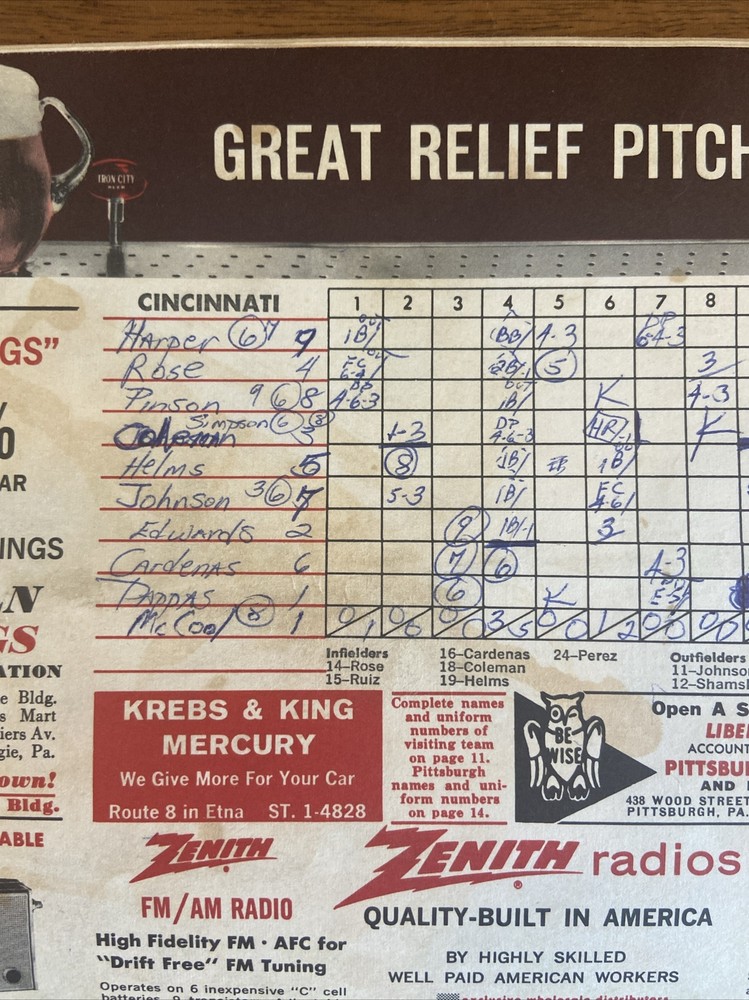 GREAT RELIEF PITCH
IRON CITY
BEER
CINCINNATI 1 2 3 4 5 6 7 8
Harper 6 7 9 1B BB 4-3 6-4-3
Rose 4 FC 2B 5 3
Pinson 9 6 8 4-6-3 1B K 4-3
Simpson 6 8
Coleman 3 1-3 DP 4-6-3 HR K
Helms 5 8 1B 1B
Johnson 3 6 7 5-3 1B FC 4-6
Edwards 2 9 1B-1 3
Cardenas 6 7 6 4-3
Pappas 1 6 K E-5
McCool 8 1 0/1 0/0 0/0 3/5 0/0 1/2 0/0 0/0
GS"
0
AR
INGS
N
GS
ATION
e Bldg.
s Mart
iers Av.
gie, Pa.
own!
Bldg.
ABLE
Infielders
14–Rose
15–Ruiz
16–Cardenas
18–Coleman
19–Helms
24–Perez
Outfielders
11–Johnso
12–Shamsl
KREBS & KING
MERCURY
We Give More For Your Car
Route 8 in Etna ST. 1-4828
Complete names
and uniform
numbers of
visiting team
on page 11.
Pittsburgh
names and uni-
form numbers
on page 14.
BE
WISE
Open A S
LIBE
ACCOUNT
PITTSBU
AND
438 WOOD STREET
PITTSBURGH, PA.
ZENITH
FM/AM RADIO
High Fidelity FM · AFC for
"Drift Free" FM Tuning
Operates on 6 inexpensive "C" cell
ZENITH radios
QUALITY-BUILT IN AMERICA
BY HIGHLY SKILLED
WELL PAID AMERICAN WORKERS